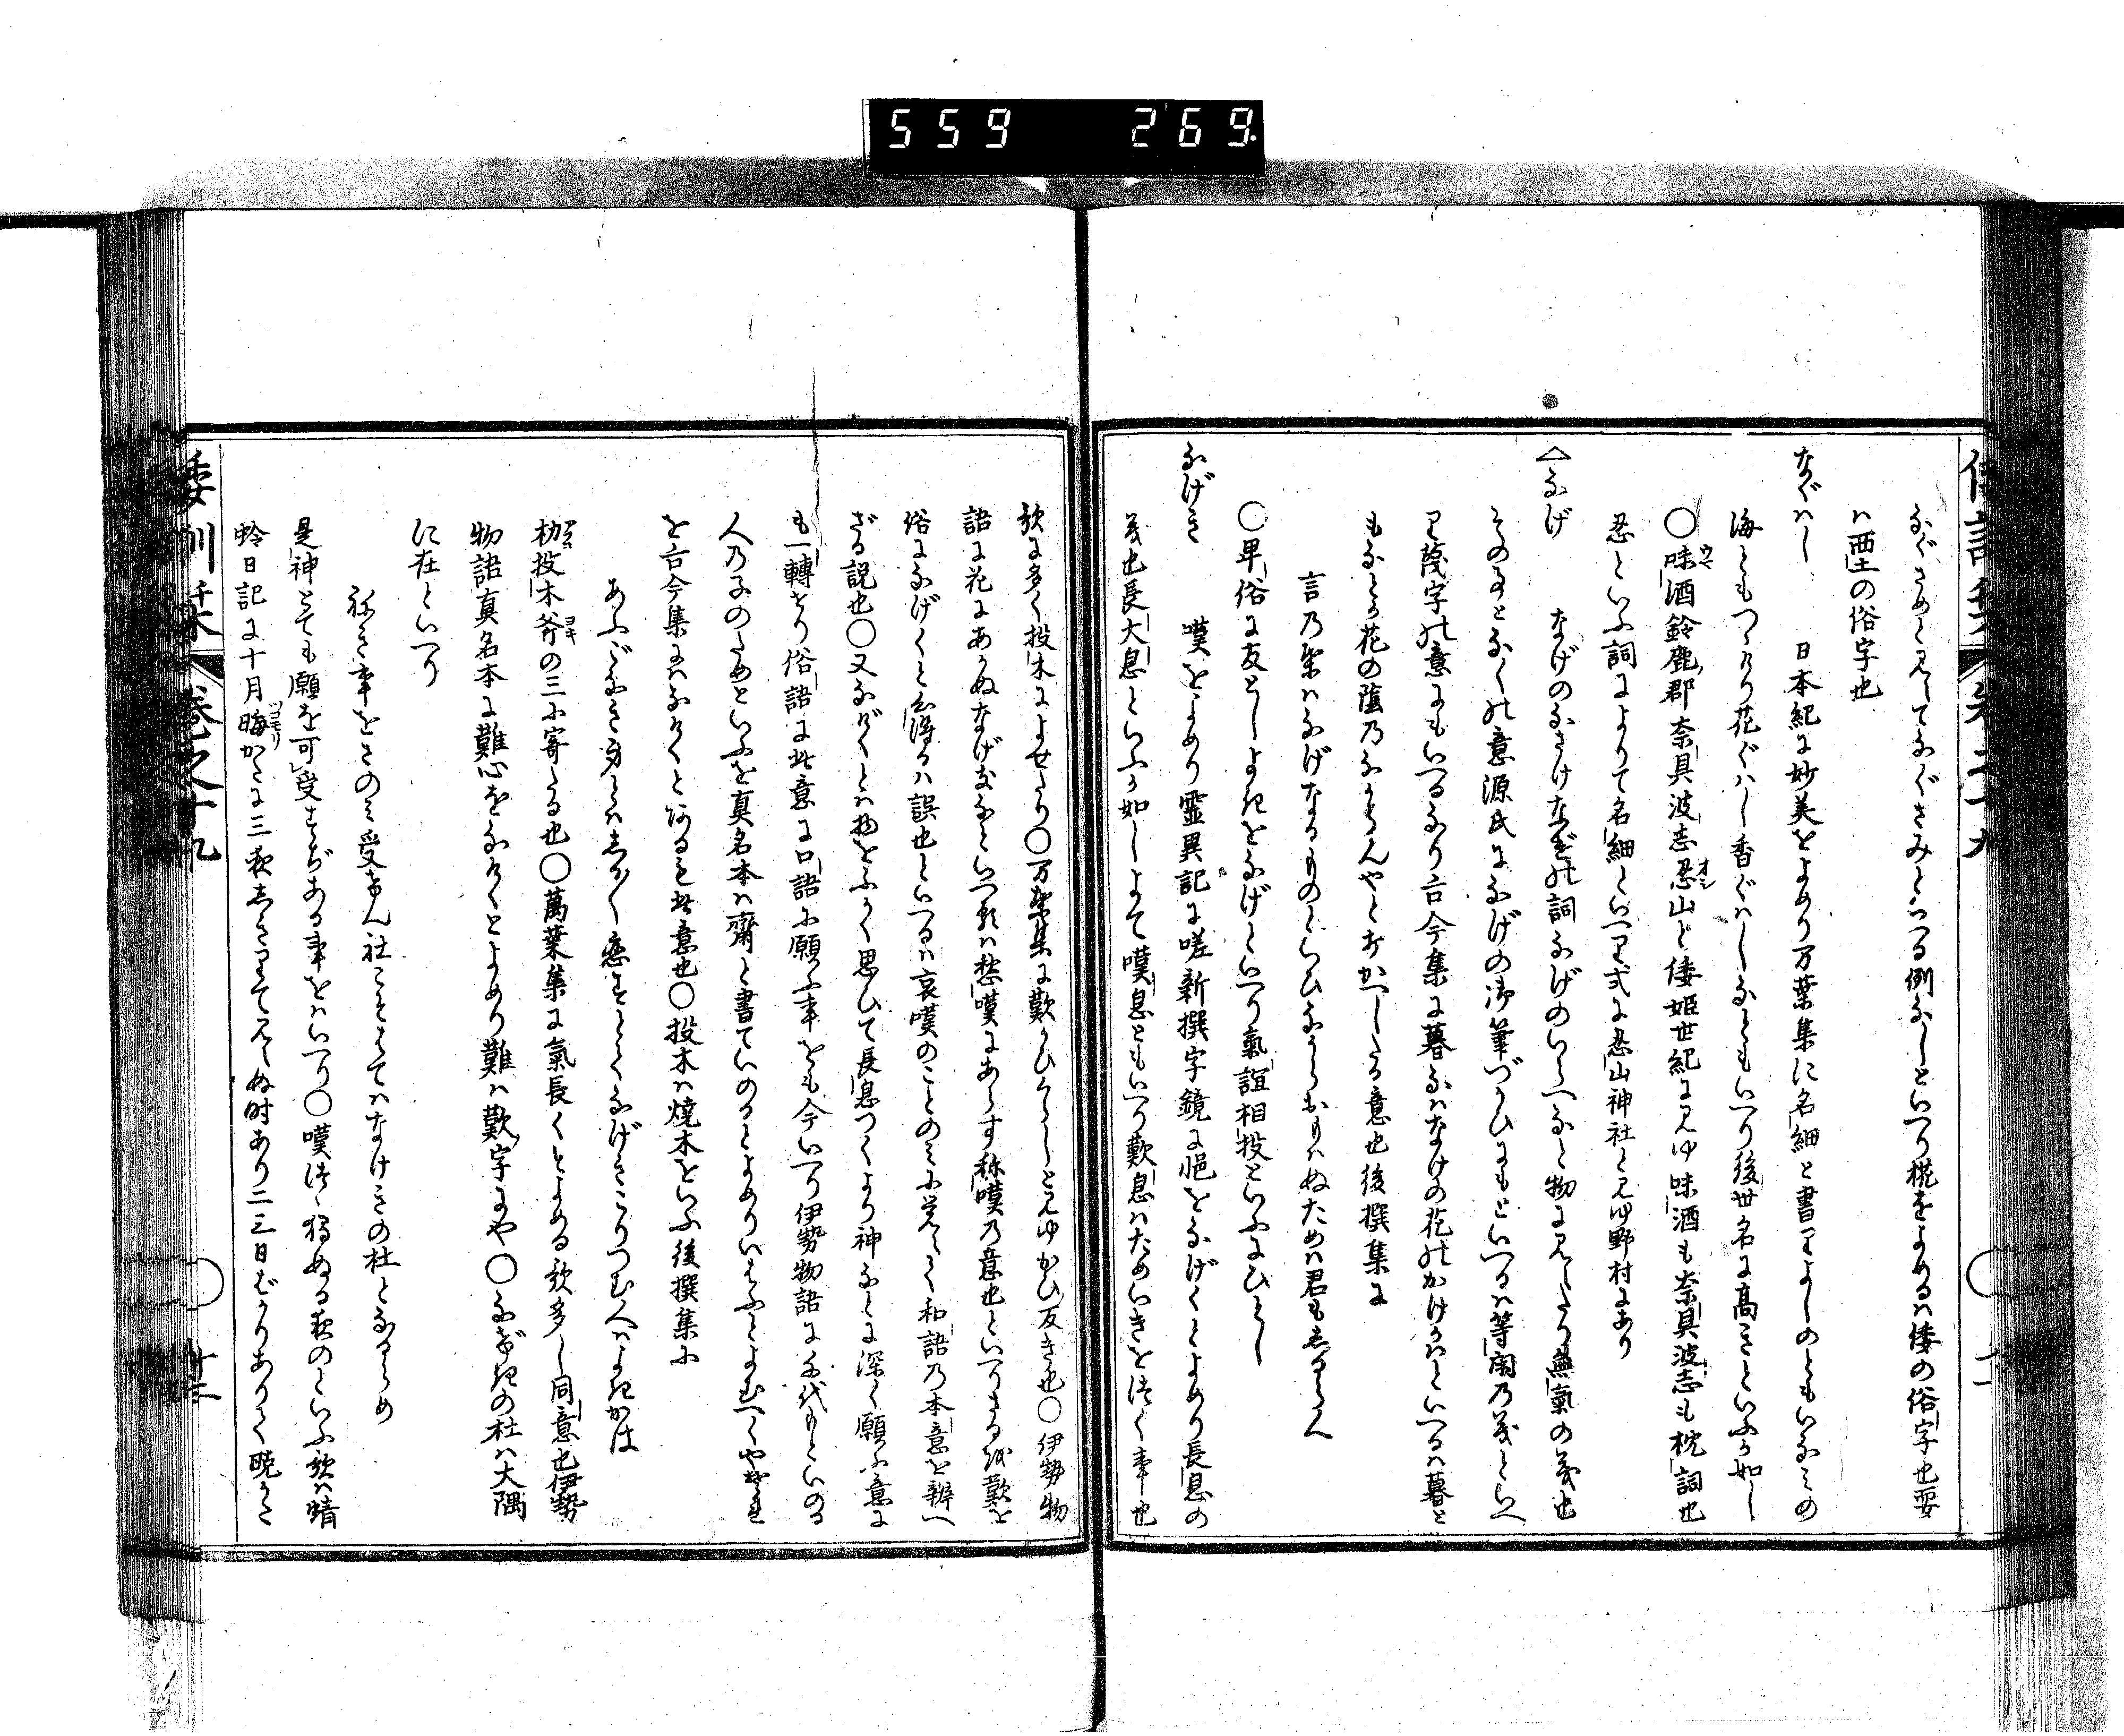 559 269
なぐさめとみてなぐさみといへる例なしといへり椛をよめるハ倭の俗字也耍
ハ西土の俗字也
なぐハし 日本紀に妙美をよめり万葉集に名細と書りよしのともいなみの
海ともつゞけり花ぐハし香ぐハしなどもいへり後世名に高きといふが如し
〇味酒鈴鹿郡奈具波志忍山ど倭姫世紀に見ゆ味酒も奈具波志も枕詞也
忍といふ詞によりて名細といへり式に忍山神社と見ゆ野村にあり
△なげ なげのなさけなげの詞なげのいらへなど物に見えたり無氣の義也
そのことなくの意源氏になげの御筆づかひにもといへるハ等閑の義といへ
り蔑字の意にもいへるなり古今集に暮なハなけの花のかけかハといへるハ暮と
もなとか花の蔭乃なからんやとおかへしたる意也後撰集に
言乃葉ハなげなるものといひながらおもハぬためハ君もしるらん
〇卑俗に友としよきをなげといへり氣誼相投といふにひとし
なげき 嘆をよめり霊異記に嗟新撰字鏡に悒をなげくとよめり長息の
義也長大息といふが如しよて嘆息ともいへり歎息ハためいきをつく事也
歌に多く投木によせたり〇万葉集に歎かひくらしと見ゆかひ反き也〇伊勢物
語に花にあかぬなげきなどいへるハ愁嘆にあらす称嘆乃意也といへりさるを歎を
俗になげくと心得るハ誤也といへるハ哀嘆のことのみに覚えて和語乃本意を辨へ
ざる説也〇又なげくとハ物をふかく思ひて長息つくより神などに深く願ふ意に
も一轉せり俗語に此意に口語に願ふ事をも今いへり伊勢物語に千代もといのる
人乃子のためといふを真名本ハ齋と書ていのるとよめりいはふとよむべくや
を古今集にハなけくとあるも此意也〇投木ハ燒木をいふ後撰集に
あふごなき身とハしる〳〵恋すとてなげきこりつむ人ハよきかは
枴投木斧の三に寄たる也〇萬葉集に氣長くとよめる歌多し同意也伊勢
物語真名本に難心をなけくとよめり難ハ歎字にや〇なげきの杜ハ大隅
に在といへり
ねき事をさのミ受けん社こそはてハなけきの杜となるらめ
是神とても願を可受すぢある事をハいへり〇嘆つゝ獨ぬる夜のといふ歌ハ蜻
蛉日記に十月晦かたに三夜しきりて見えぬ時あり二三日ばかりありて暁かた
倭訓栞 巻之十九